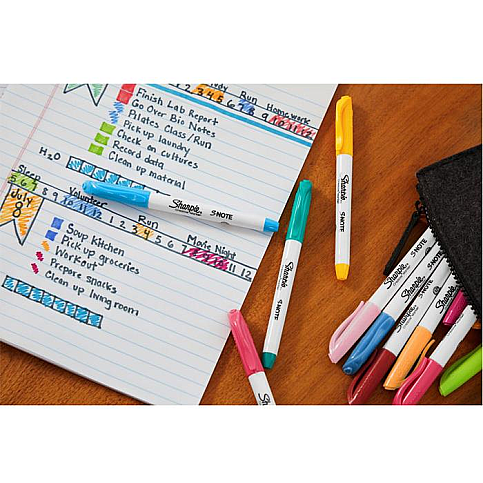 Study Run Homework
3 4 5 6 7 8 9 10 11 12
Finish Lab Report
Go Over Bio Notes
Pilates Class/Run
Pick up laundry
Check on cultures
Record data
Clean up material
H2O
Sleep Volunteer Run Movie Night
5 6 7 8 9 10 11 12 1 2 3 4 5 6 7 8 9 10 11 12
July
8
Soup Kitchen
Pick up groceries
Workout
Prepare snacks
Clean up living room
Sharpie S·NOTE
Sharpie S·NOTE
Sharpie S·NOTE
Sharpie
Sharpie S·NOTE
Sharpie S·NOTE
Sharpie
Sharpie